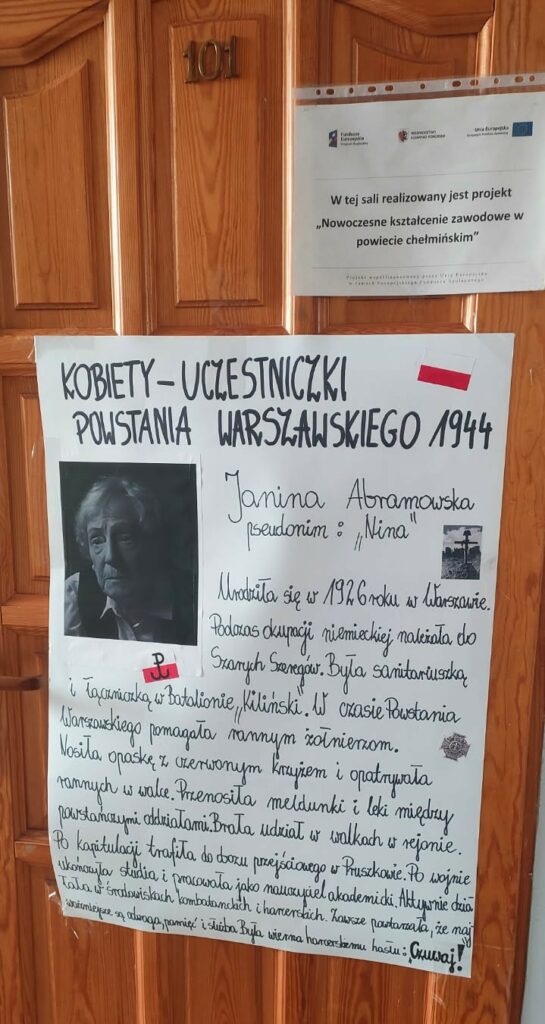 101
Fundusze
Europejskie
Unia Europejska
W tej sali realizowany jest projekt
„Nowoczesne kształcenie zawodowe w
powiecie chełmińskim”
Projekt współfinansowany przez Unię Europejską
w ramach Europejskiego Funduszu Społecznego
KOBIETY – UCZESTNICZKI
POWSTANIA WARSZAWSKIEGO 1944
Janina Abramowska
pseudonim: „Nina”
Urodziła się w 1926 roku w Warszawie.
Podczas okupacji niemieckiej należała do
Szarych Szeregów. Była sanitariuszką
i łączniczką w Batalionie „Kiliński”. W czasie Powstania
Warszawskiego pomagała rannym żołnierzom.
Nosiła opaskę z czerwonym krzyżem i opatrywała
rannych w walce. Przenosiła meldunki i leki między
powstańczymi oddziałami. Brała udział w walkach w rejonie.
Po kapitulacji trafiła do obozu przejściowego w Pruszkowie. Po wojnie
ukończyła studia i pracowała jako nauczyciel akademicki. Aktywnie dzia
łała w środowiskach kombatanckich i harcerskich. Zawsze powtarzała, że naj
ważniejsze są odwaga, pamięć i służba. Była wierna harcerskiemu hasłu: „Czuwaj!”